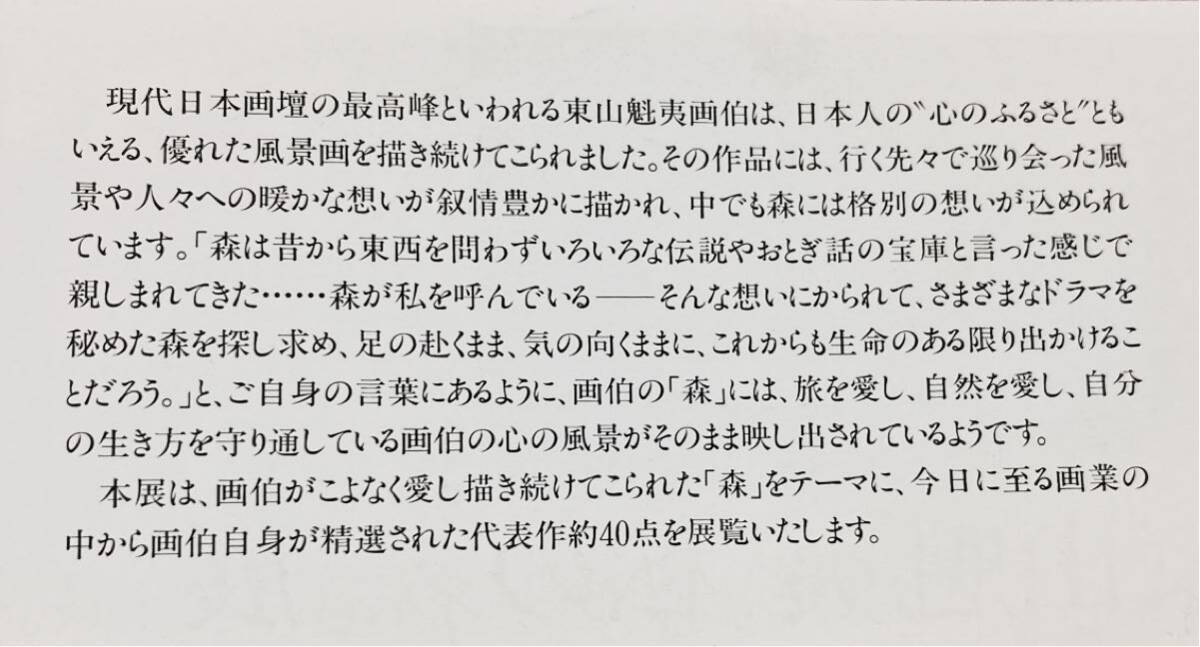 現代日本画壇の最高峰といわれる東山魁夷画伯は、日本人の〝心のふるさと〞とも
いえる、優れた風景画を描き続けてこられました。その作品には、行く先々で巡り会った風
景や人々への暖かな想いが叙情豊かに描かれ、中でも森には格別の想いが込められ
ています。「森は昔から東西を問わずいろいろな伝説やおとぎ話の宝庫と言った感じで
親しまれてきた……森が私を呼んでいる――そんな想いにかられて、さまざまなドラマを
秘めた森を探し求め、足の赴くまま、気の向くままに、これからも生命のある限り出かけるこ
とだろう。」と、ご自身の言葉にあるように、画伯の「森」には、旅を愛し、自然を愛し、自分
の生き方を守り通している画伯の心の風景がそのまま映し出されているようです。
本展は、画伯がこよなく愛し描き続けてこられた「森」をテーマに、今日に至る画業の
中から画伯自身が精選された代表作約40点を展覧いたします。